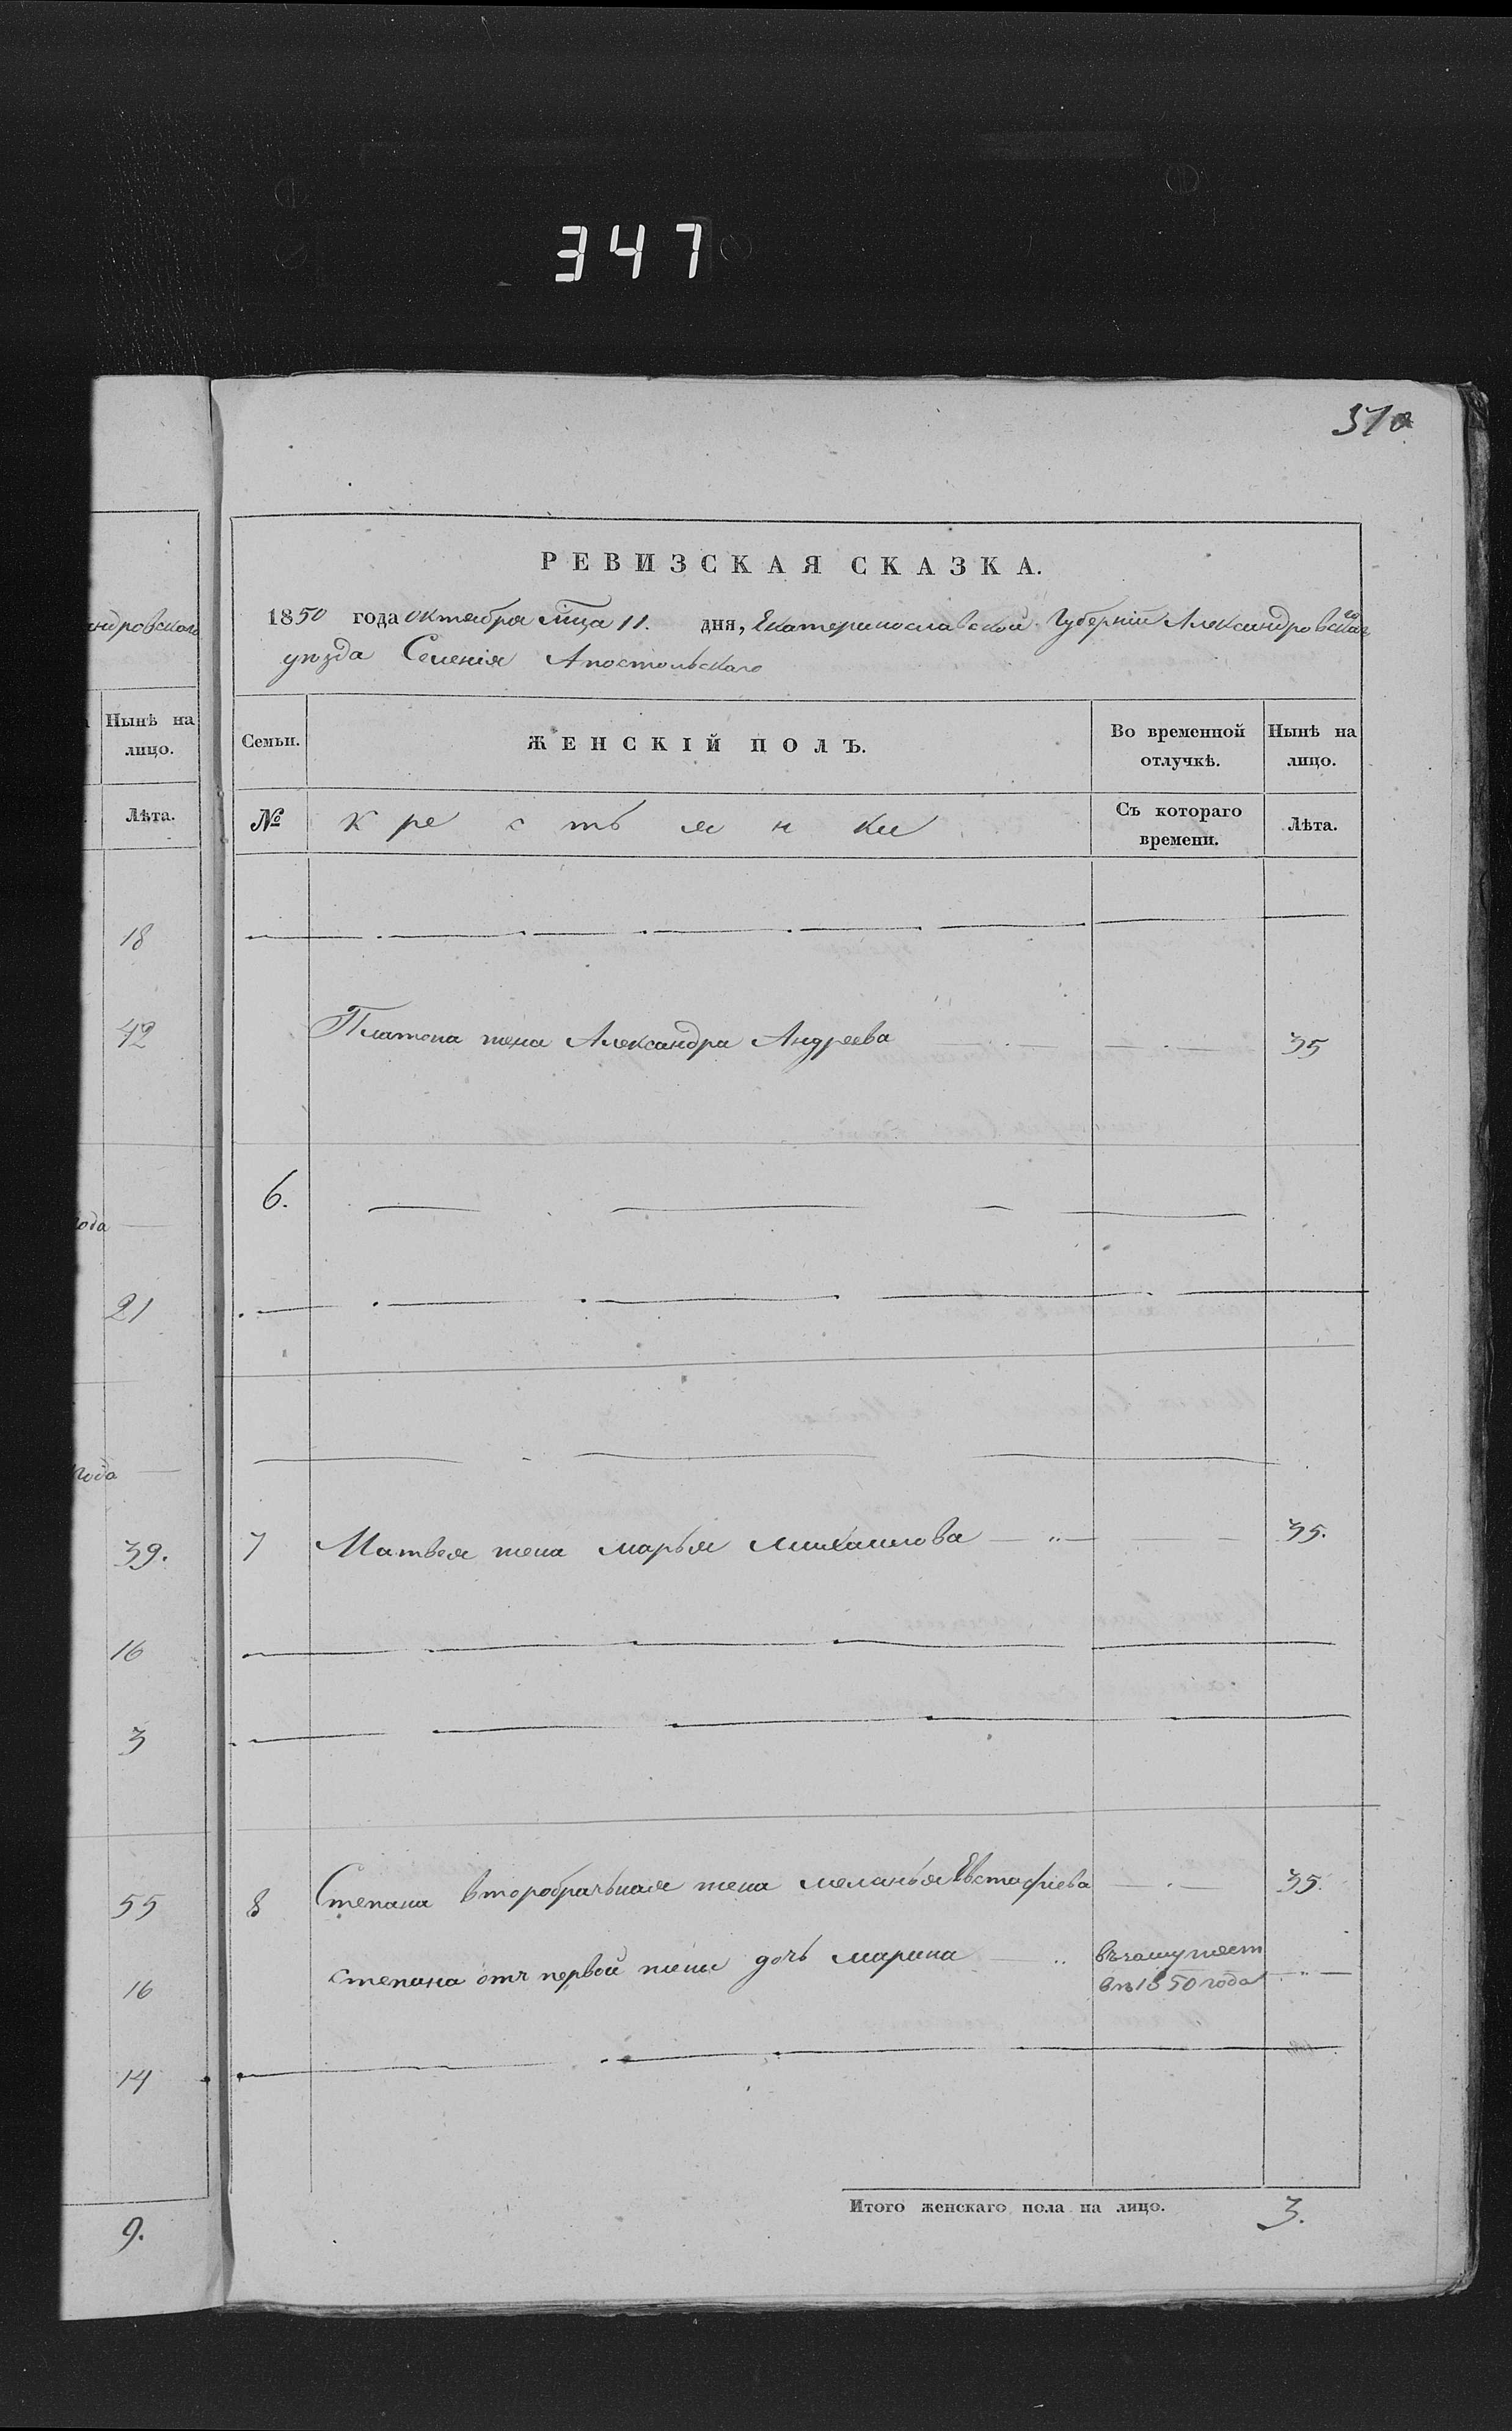 347
370
РЕВИЗСКАЯ СКАЗКА.
1850 года октября мѣца 11. дня, Екатеринославской Губерніи Александровскаго
уѣзда Селенія Апостольскаго
андровскаго
Нынѣ на
лицо.
Лѣта.
18
42
года
21
года
39.
16
3
55
16
14
9.
Семьи.
ЖЕНСКІЙ ПОЛЪ.
Во временной
отлучкѣ.
Нынѣ на
лицо.
№
крестьянки
Съ котораго
времени.
Лѣта.
Платона жена Александра Андреева 35
6.
7 Матвея жена марья михаилова 35.
8 Степана второбрачьная жена меланья Евстафіева 35.
степана отъ первой жены дочь марина
въ замужест
въ 1850 года
Итого женскаго пола на лицо. 3.